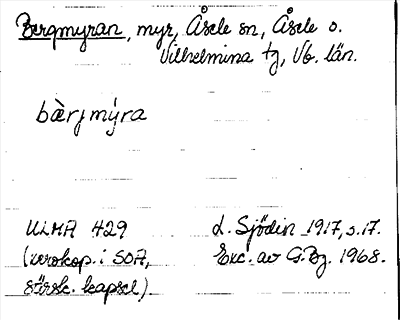 Bergmyran, myr, Åsele sn, Åsele o.
Vilhelmina tg, Vb. län.
bàrjmýra
ULMA 429
(xerokop. i SOA,
särsk. kapsel)
L. Sjödin 1917, s. 17.
Exc. av G. Bg. 1968.